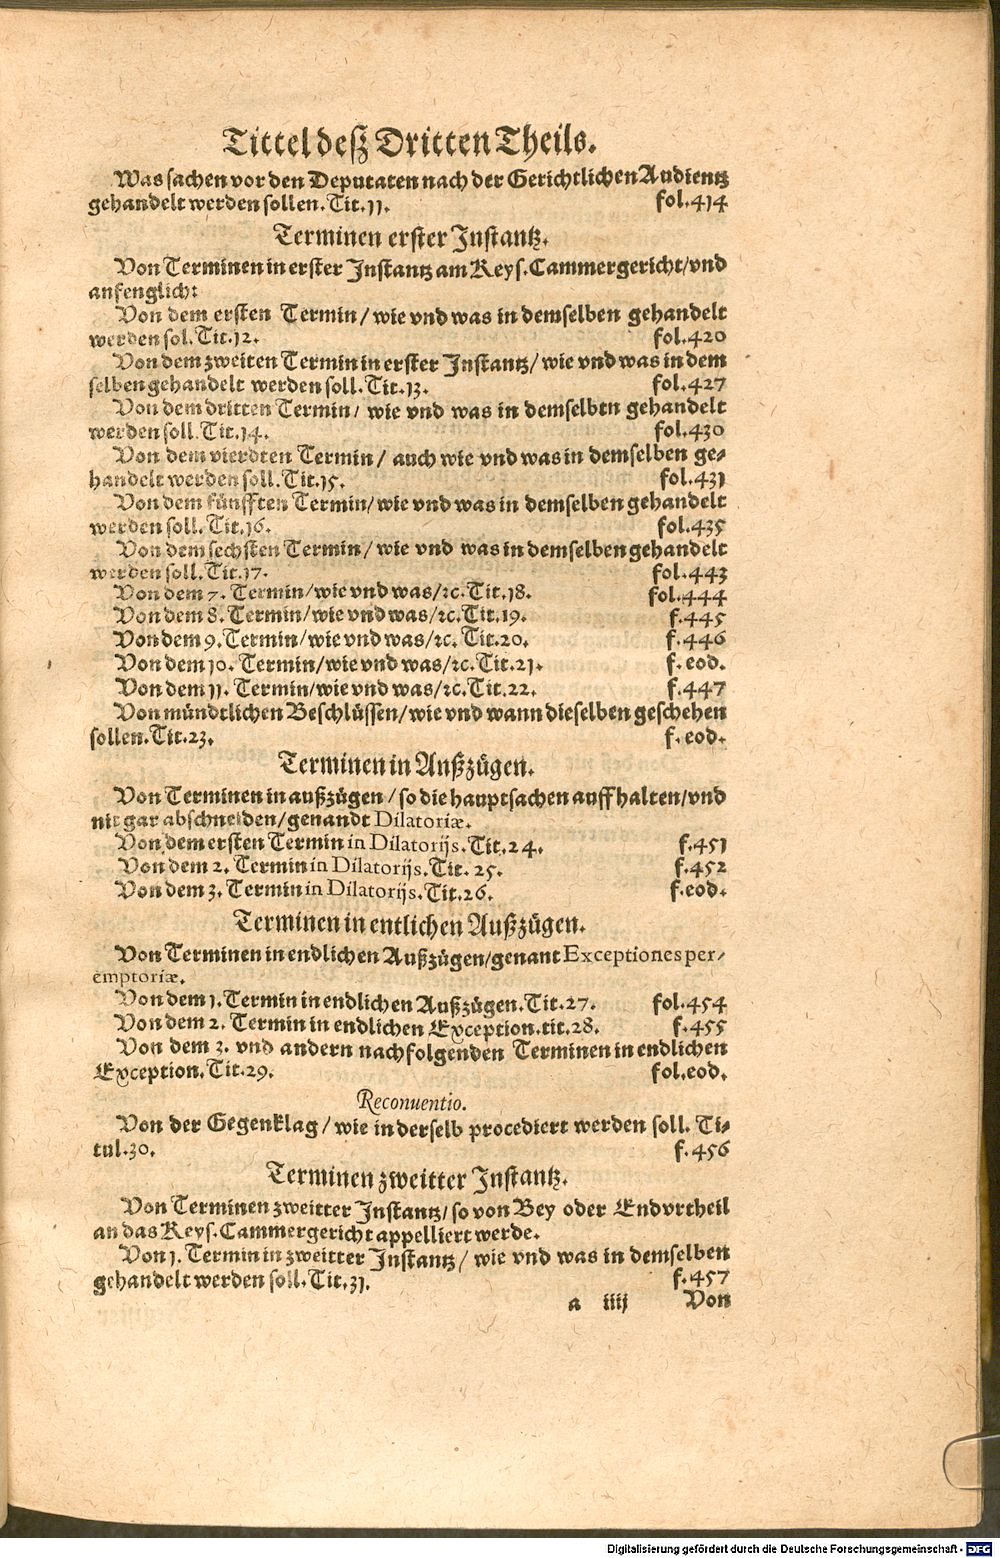 Tittel deß Dritten Theils.
Was sachen vor den Deputaten nach der Gerichtlichen Audientz
gehandelt werden sollen. Tit. 11. fol. 414
Terminen erster Instantz.
Von Terminen in erster Instantz am Keys. Cammergericht/vnd
anfenglich:
Von dem ersten Termin/ wie vnd was in demselben gehandelt
werden sol. Tit. 12. fol. 420
Von dem zweiten Termin in erster Instantz/ wie vnd was in dem
selben gehandelt werden soll. Tit. 13. fol. 427
Von dem dritten Termin/ wie vnd was in demselben gehandelt
werden soll. Tit. 14. fol. 430
Von dem vierdten Termin/ auch wie vnd was in demselben ge-
handelt werden soll. Tit. 15. fol. 431
Von dem fünfften Termin/ wie vnd was in demselben gehandelt
werden soll. Tit. 16. fol. 435
Von dem sechsten Termin/ wie vnd was in demselben gehandelt
werden soll. Tit. 17. fol. 443
Von dem 7. Termin/wie vnd was/ꝛc. Tit. 18. fol. 444
Von dem 8. Termin/wie vnd was/ꝛc. Tit. 19. f. 445
Von dem 9. Termin/wie vnd was/ꝛc. Tit. 20. f. 446
Von dem 10. Termin/wie vnd was/ꝛc. Tit. 21. f. eod.
Von dem 11. Termin/wie vnd was/ꝛc. Tit. 22. f. 447
Von mündtlichen Beschlüssen/wie vnd wann dieselben geschehen
sollen. Tit. 23. f. eod.
Terminen in Außzügen.
Von Terminen in außzügen/ so die hauptsachen auffhalten/vnd
nit gar abschneiden/genandt Dilatoriæ.
Von dem ersten Termin in Dilatorijs. Tit. 24. f. 451
Von dem 2. Termin in Dilatorijs. Tit. 25. f. 452
Von dem 3. Termin in Dilatorijs. Tit. 26. f. eod.
Terminen in entlichen Außzügen.
Von Terminen in endlichen Außzügen/genant Exceptiones per-
emptoriæ.
Von dem 1. Termin in endlichen Außzügen. Tit. 27. fol. 454
Von dem 2. Termin in endlichen Exception. tit. 28. f. 455
Von dem 3. vnd andern nachfolgenden Terminen in endlichen
Exception. Tit. 29. fol. eod.
Reconuentio.
Von der Gegenklag/ wie in derselb procediert werden soll. Ti-
tul. 30. f. 456
Terminen zweitter Instantz.
Von Terminen zweitter Instantz/ so von Bey oder Endvrtheil
an das Keys. Cammergericht appelliert werde.
Von 1. Termin in zweitter Instantz/ wie vnd was in demselben
gehandelt werden soll. Tit. 31. f. 457
a iiij Von
Digitalisierung gefördert durch die Deutsche Forschungsgemeinschaft - DFG